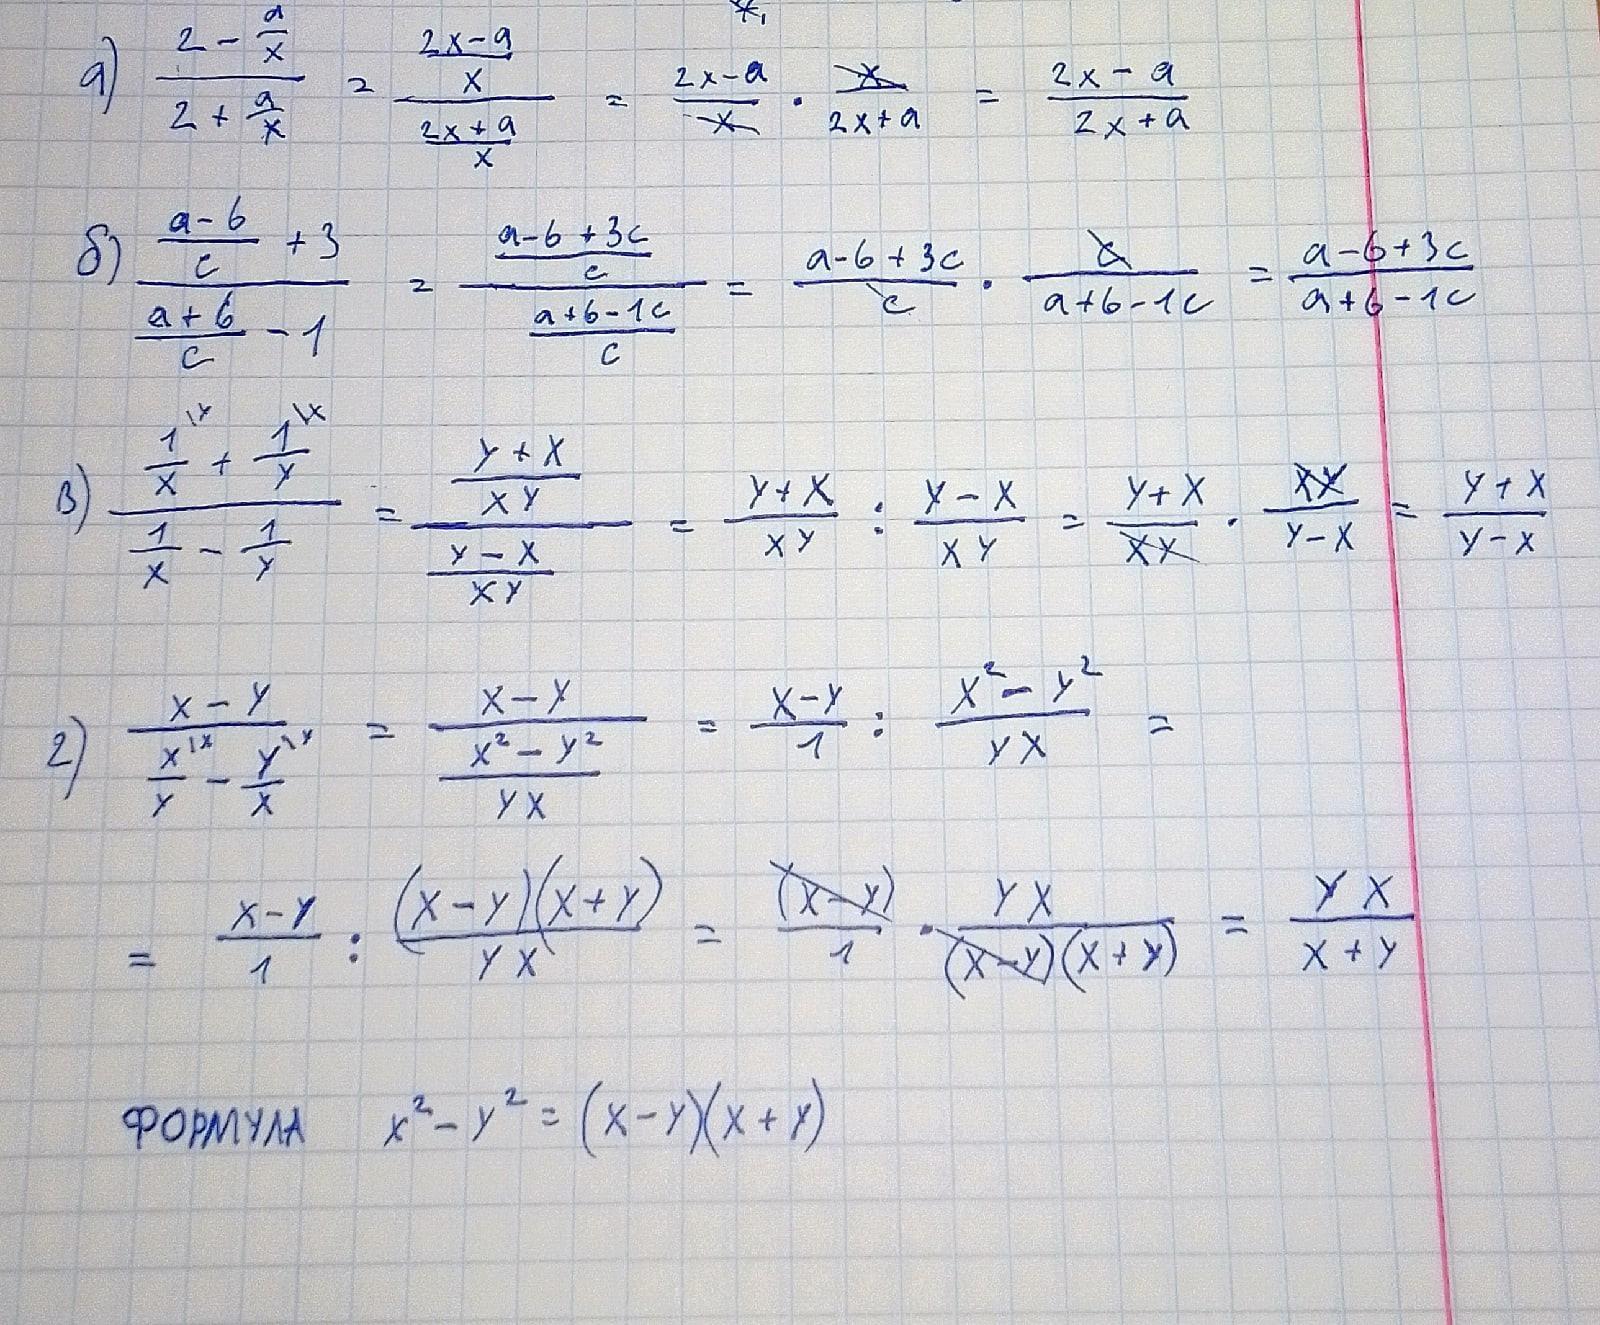 а) (2 - a/x)/(2 + a/x) = ((2x-a)/x)/((2x+a)/x) = (2x-a)/x · x/(2x+a) = (2x-a)/(2x+a)
б) ((a-b)/c + 3)/((a+b)/c - 1) = ((a-b+3c)/c)/((a+b-1c)/c) = (a-b+3c)/c · c/(a+b-1c) = (a-b+3c)/(a+b-1c)
в) (1/x + 1/y)/(1/x - 1/y) = ((y+x)/(xy))/((y-x)/(xy)) = (y+x)/(xy) : (y-x)/(xy) = (y+x)/(xy) · xy/(y-x) = (y+x)/(y-x)
г) (x-y)/(x/y - y/x) = (x-y)/((x²-y²)/(yx)) = (x-y)/1 : (x²-y²)/(yx) =
= (x-y)/1 : ((x-y)(x+y))/(yx) = (x-y)/1 · yx/((x-y)(x+y)) = yx/(x+y)
ФОРМУЛА x²-y²=(x-y)(x+y)